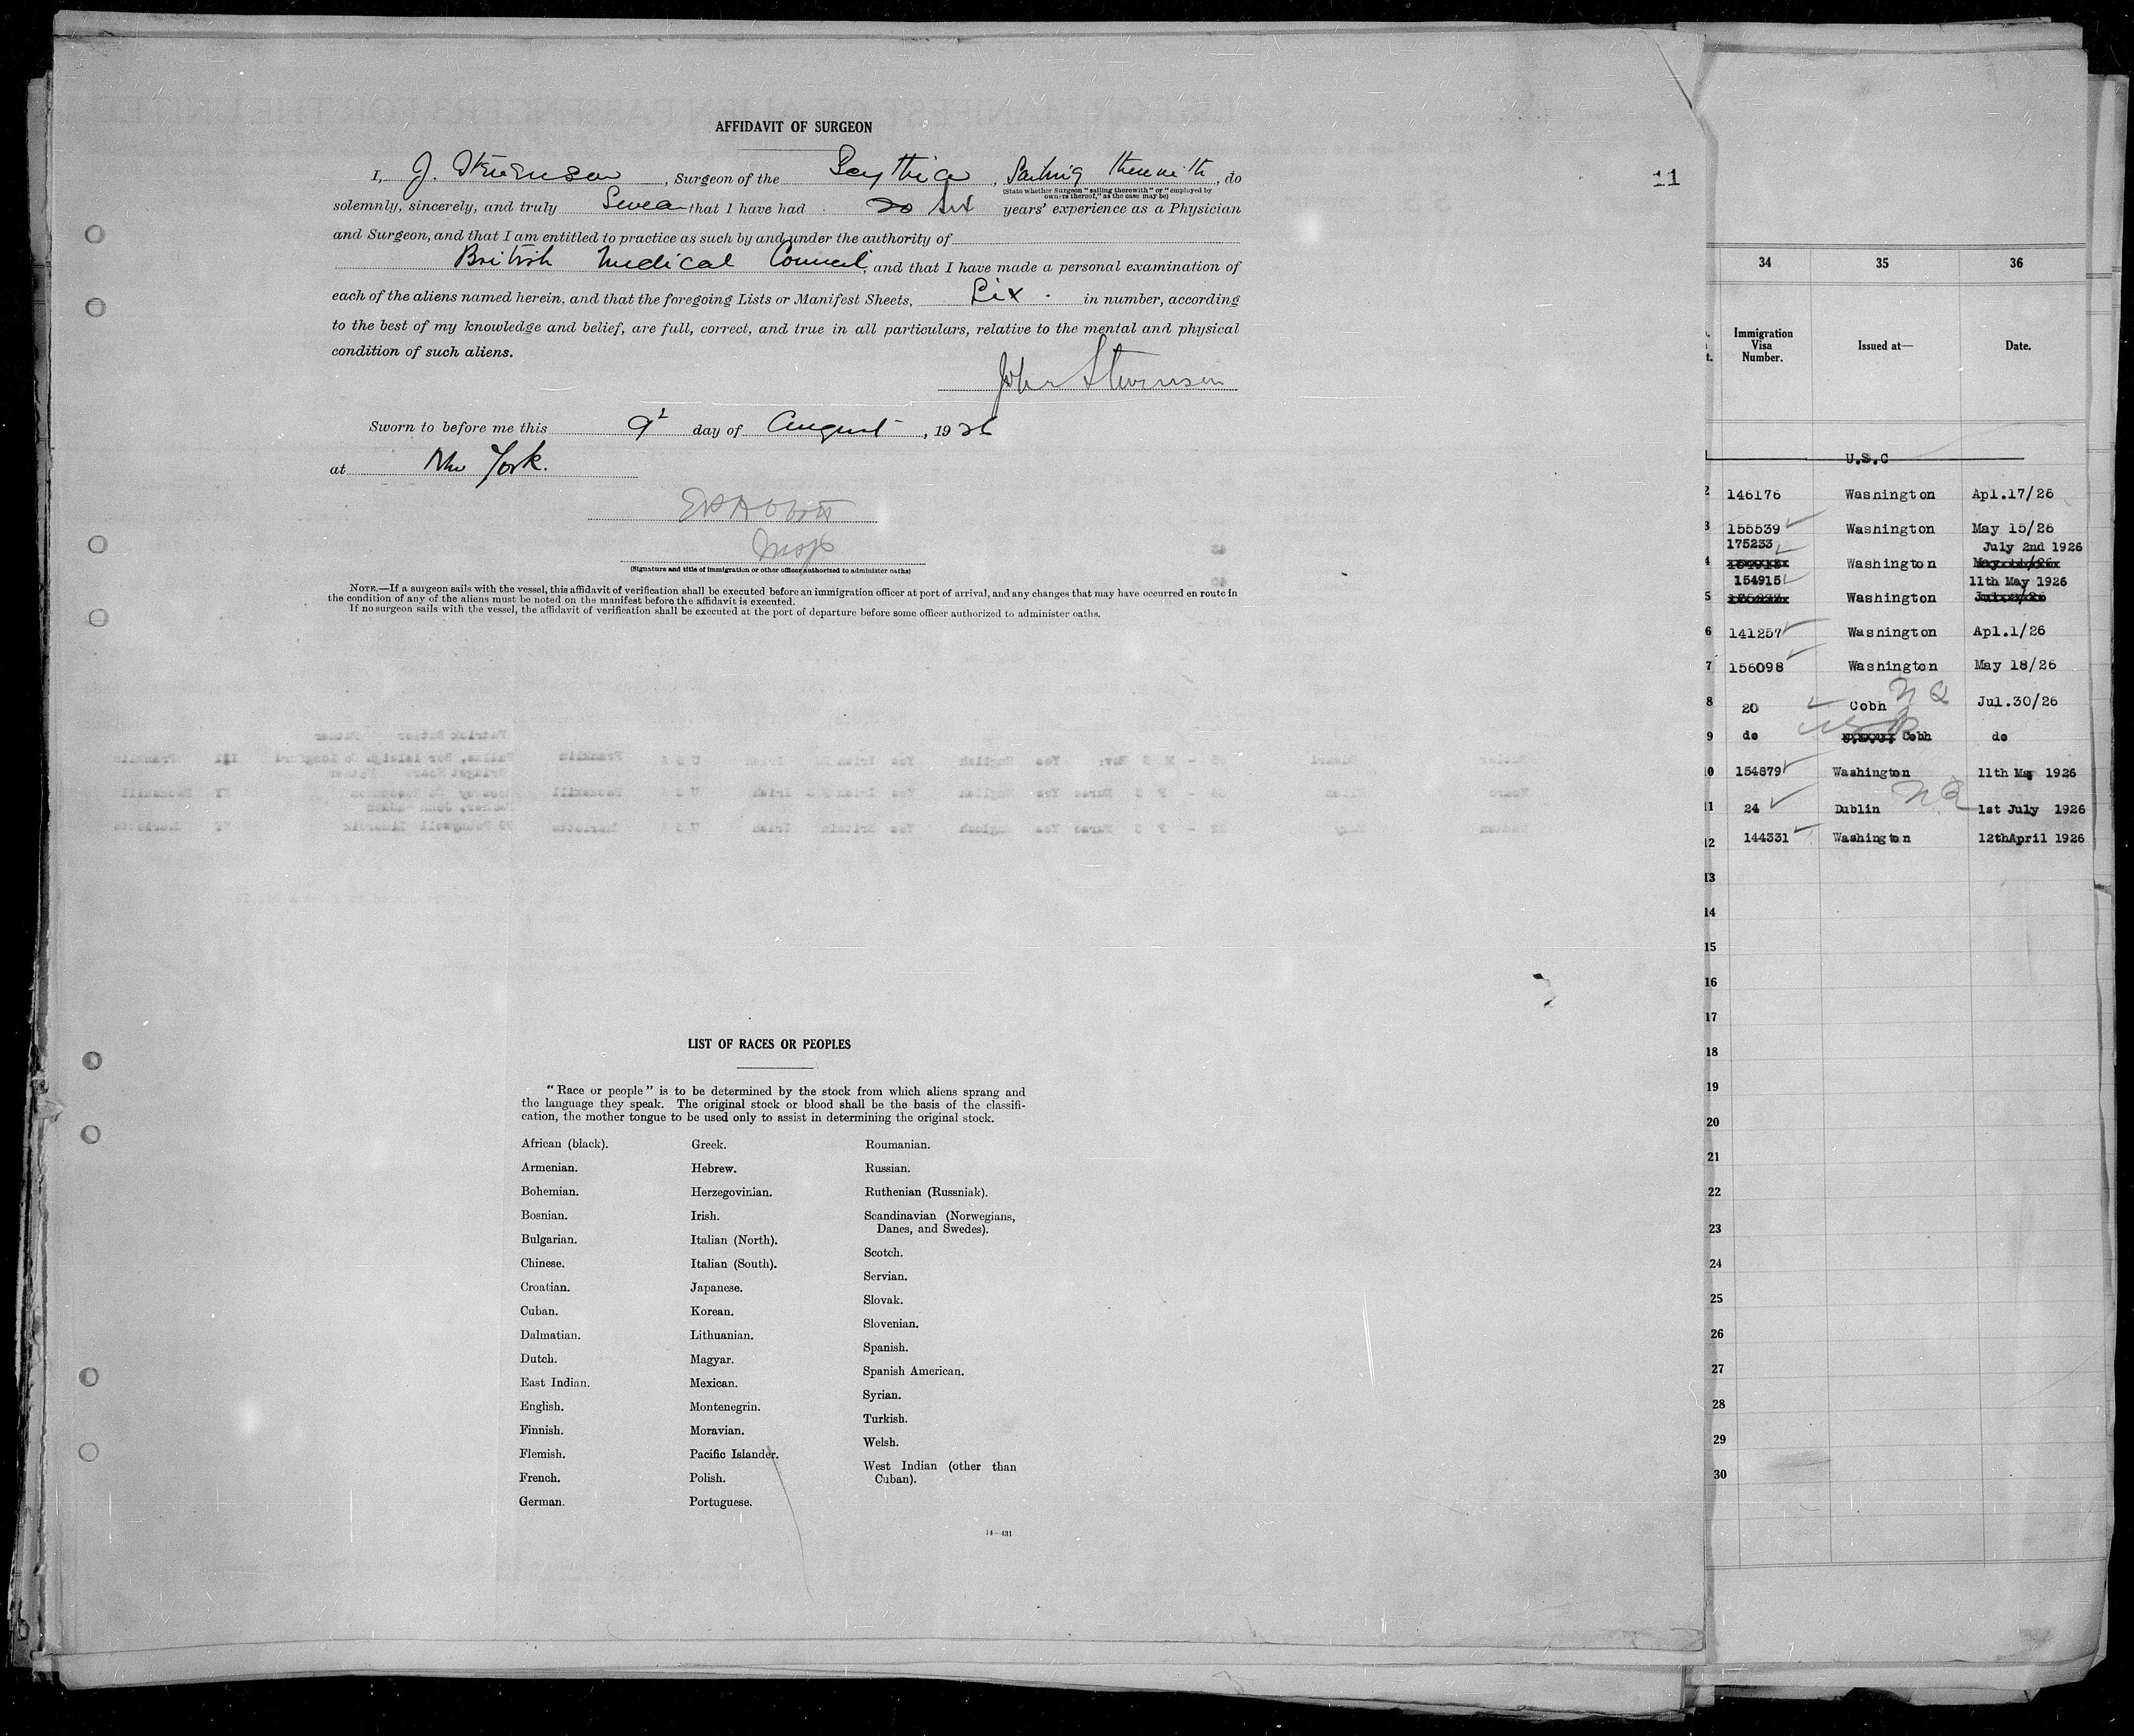 AFFIDAVIT OF SURGEON
I, J. Stevenson, Surgeon of the Scythia, Sailing therewith, do
(State whether Surgeon "sailing therewith" or "employed by
owners thereof," as the case may be)
solemnly, sincerely, and truly Swear that I have had 20 six years' experience as a Physician
and Surgeon, and that I am entitled to practice as such by and under the authority of
British Medical Council, and that I have made a personal examination of
each of the aliens named herein, and that the foregoing Lists or Manifest Sheets, Six in number, according
to the best of my knowledge and belief, are full, correct, and true in all particulars, relative to the mental and physical
condition of such aliens.
John Stevenson
Sworn to before me this 9 day of August, 1926
at New York.
Insp
(Signature and title of immigration or other officer authorized to administer oaths)
NOTE.—If a surgeon sails with the vessel, this affidavit of verification shall be executed before an immigration officer at port of arrival, and any changes that may have occurred en route in
the condition of any of the aliens must be noted on the manifest before the affidavit is executed.
If no surgeon sails with the vessel, the affidavit of verification shall be executed at the port of departure before some officer authorized to administer oaths.
LIST OF RACES OR PEOPLES
"Race or people" is to be determined by the stock from which aliens sprang and
the language they speak. The original stock or blood shall be the basis of the classifi-
cation, the mother tongue to be used only to assist in determining the original stock.
African (black).
Armenian.
Bohemian.
Bosnian.
Bulgarian.
Chinese.
Croatian.
Cuban.
Dalmatian.
Dutch.
East Indian.
English.
Finnish.
Flemish.
French.
German.
Greek.
Hebrew.
Herzegovinian.
Irish.
Italian (North).
Italian (South).
Japanese.
Korean.
Lithuanian.
Magyar.
Mexican.
Montenegrin.
Moravian.
Pacific Islander.
Polish.
Portuguese.
Roumanian.
Russian.
Ruthenian (Russniak).
Scandinavian (Norwegians,
Danes, and Swedes).
Scotch.
Servian.
Slovak.
Slovenian.
Spanish.
Spanish American.
Syrian.
Turkish.
Welsh.
West Indian (other than
Cuban).
14—431
11
34 35 36
Immigration
Visa
Number.
Issued at—
Date.
U.S.C
2 146176 Washington Apl.17/26
3 155539 Washington May 15/26
175233 July 2nd 1926
4 Washington
154915 11th May 1926
5 Washington
6 141257 Washington Apl.1/26
7 156098 Washington May 18/26
8 20 Cobh Jul.30/26
9 do Cobh do
10 154879 Washington 11th May 1926
11 24 Dublin 1st July 1926
12 144331 Washington 12thApril 1926
13
14
15
16
17
18
19
20
21
22
23
24
25
26
27
28
29
30